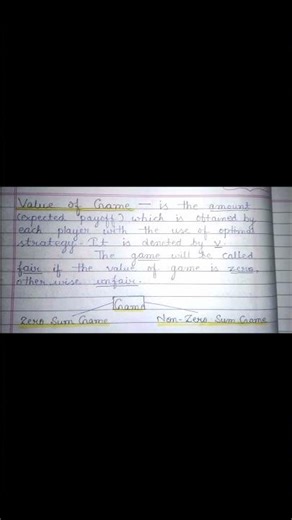 Value of Game — is the amount
(expected payoff) which is obtained by
each player with the use of optimal
strategy. It is denoted by V.
The game will be called
fair if the value of game is zero,
other wise unfair.
Game
Zero Sum Game Non-Zero Sum Game